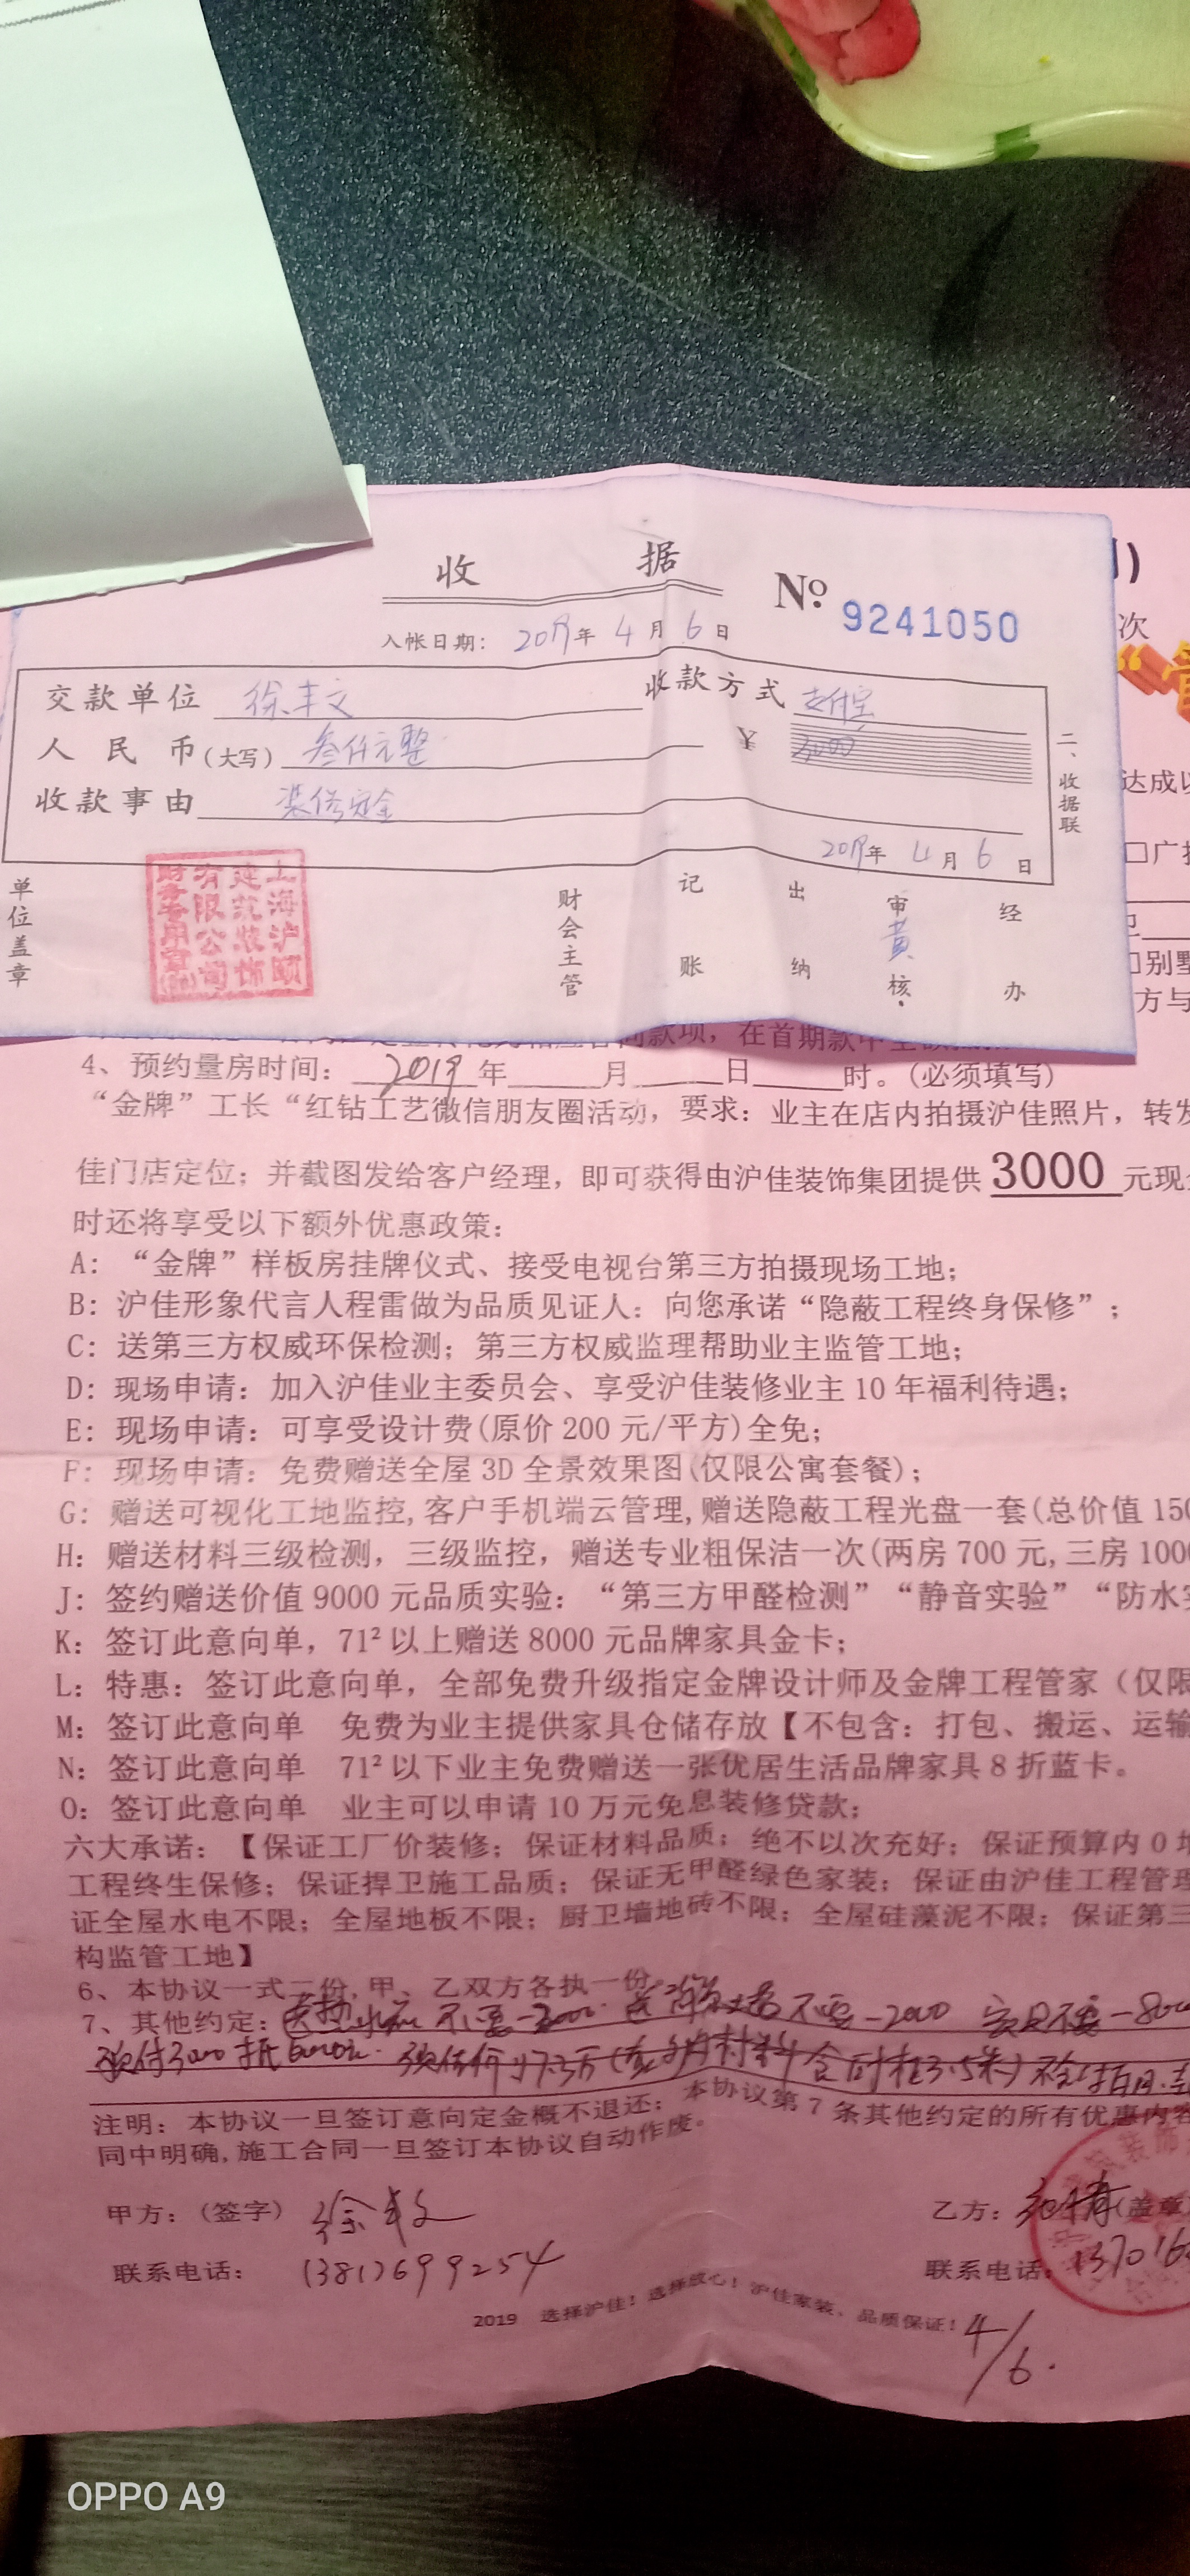 收 据
№ 9241050
入帐日期：2019年4月6日
交款单位 徐丰文 收款方式 支付宝
人民币(大写) 叁仟元整 ¥ 3000
收款事由 装修定金
2019年4月6日
二、收据联
单位盖章
上海沪颐建筑装饰有限公司财务专用章
财会主管 记账 出纳 审核 黄 经办
)
次
“
达成以
□广
□别墅
方与
款项，在首期款中
4、预约量房时间：2019年 月 日 时。(必须填写)
“金牌”工长“红钻工艺微信朋友圈活动，要求：业主在店内拍摄沪佳照片，转发
佳门店定位；并截图发给客户经理，即可获得由沪佳装饰集团提供 3000 元现金
时还将享受以下额外优惠政策：
A：“金牌”样板房挂牌仪式、接受电视台第三方拍摄现场工地；
B：沪佳形象代言人程雷做为品质见证人：向您承诺“隐蔽工程终身保修”；
C：送第三方权威环保检测；第三方权威监理帮助业主监管工地；
D：现场申请：加入沪佳业主委员会、享受沪佳装修业主10年福利待遇；
E：现场申请：可享受设计费(原价200元/平方)全免；
F：现场申请：免费赠送全屋3D全景效果图(仅限公寓套餐)；
G：赠送可视化工地监控,客户手机端云管理,赠送隐蔽工程光盘一套(总价值150
H：赠送材料三级检测，三级监控，赠送专业粗保洁一次(两房700元,三房1000
J：签约赠送价值9000元品质实验：“第三方甲醛检测”“静音实验”“防水实
K：签订此意向单，71²以上赠送8000元品牌家具金卡；
L：特惠：签订此意向单，全部免费升级指定金牌设计师及金牌工程管家（仅限
M：签订此意向单 免费为业主提供家具仓储存放【不包含：打包、搬运、运输
N：签订此意向单 71²以下业主免费赠送一张优居生活品牌家具8折蓝卡。
O：签订此意向单 业主可以申请10万元免息装修贷款；
六大承诺：【保证工厂价装修；保证材料品质；绝不以次充好；保证预算内0增
工程终生保修；保证捍卫施工品质；保证无甲醛绿色家装；保证由沪佳工程管理
证全屋水电不限；全屋地板不限；厨卫墙地砖不限；全屋硅藻泥不限；保证第三
构监管工地】
6、本协议一式二份,甲、乙双方各执一份。
7、其他约定：送热水 不要-3000 送 不要-2000 家具不要-8000
预付3000抵6000元. 预估价 7.3万
注明：本协议一旦签订意向定金概不退还；本协议第7条其他约定的所有优惠内容
同中明确,施工合同一旦签订本协议自动作废。
甲方：(签字) 徐丰文 乙方： (盖章)
联系电话：13817699254 联系电话：137016
2019 选择沪佳！选择放心！沪佳家装，品质保证！
4/6.
OPPO A9